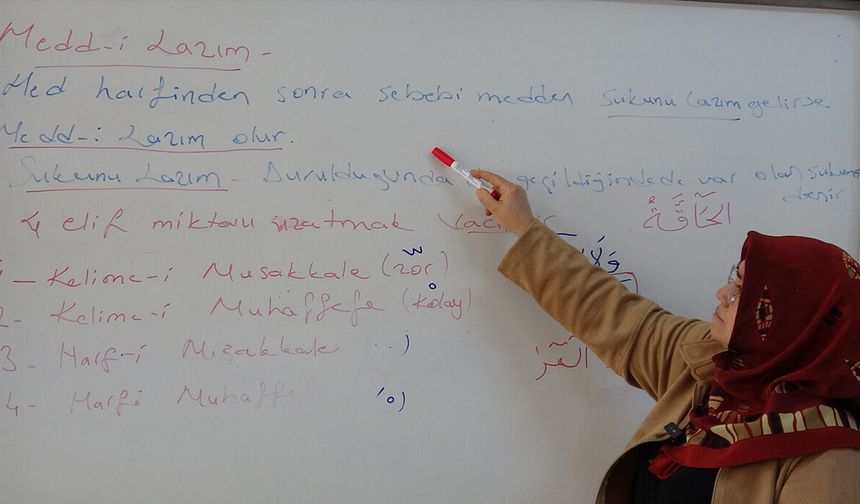 Medd-i Lazım -
Med harfinden sonra sebebi medden sukunu lazım gelirse
Medd-i Lazım olur.
Sukunu Lazım - Durulduğunda geçildiğindede var olan sukuna
denir
4 elif miktarı uzatmak الحَآقَّةُ
1 - Kelime-i Musakkale (zor)
2- Kelime-i Muhaffefe (kolay)
3- Harf-i Misakkale
4- Harfi